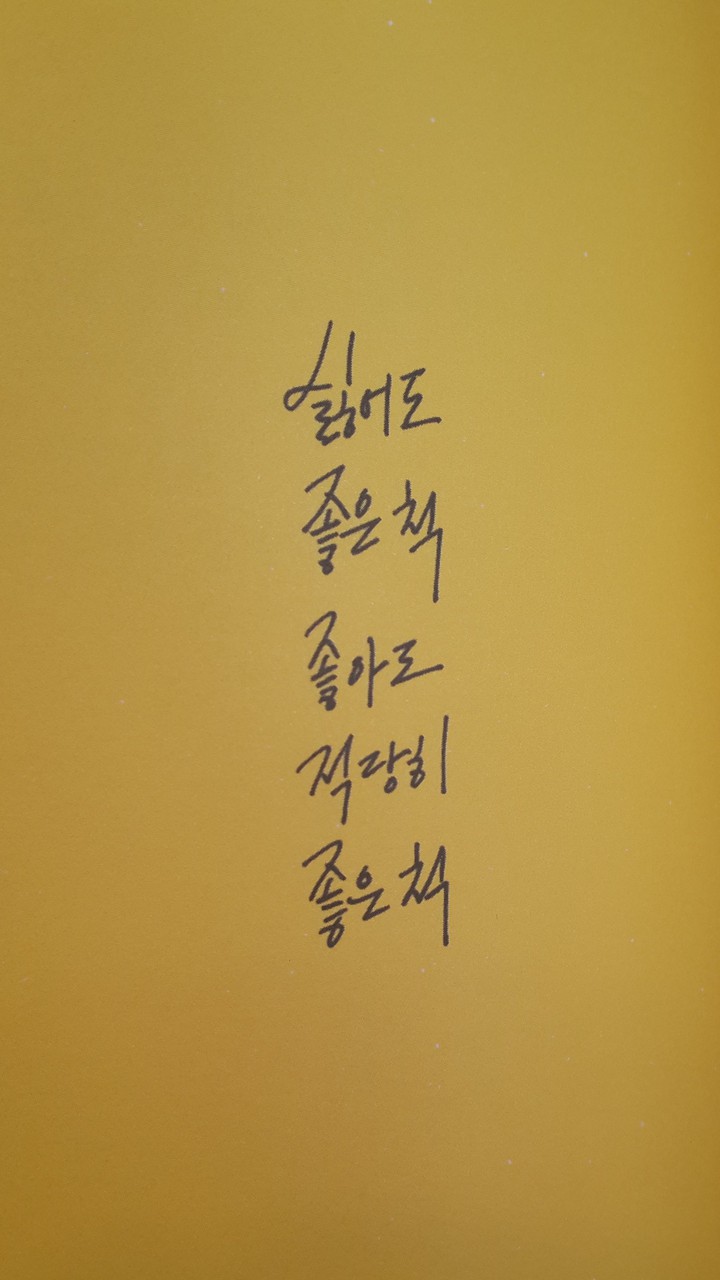 싫어도
좋은 척
좋아도
적당히
좋은 척